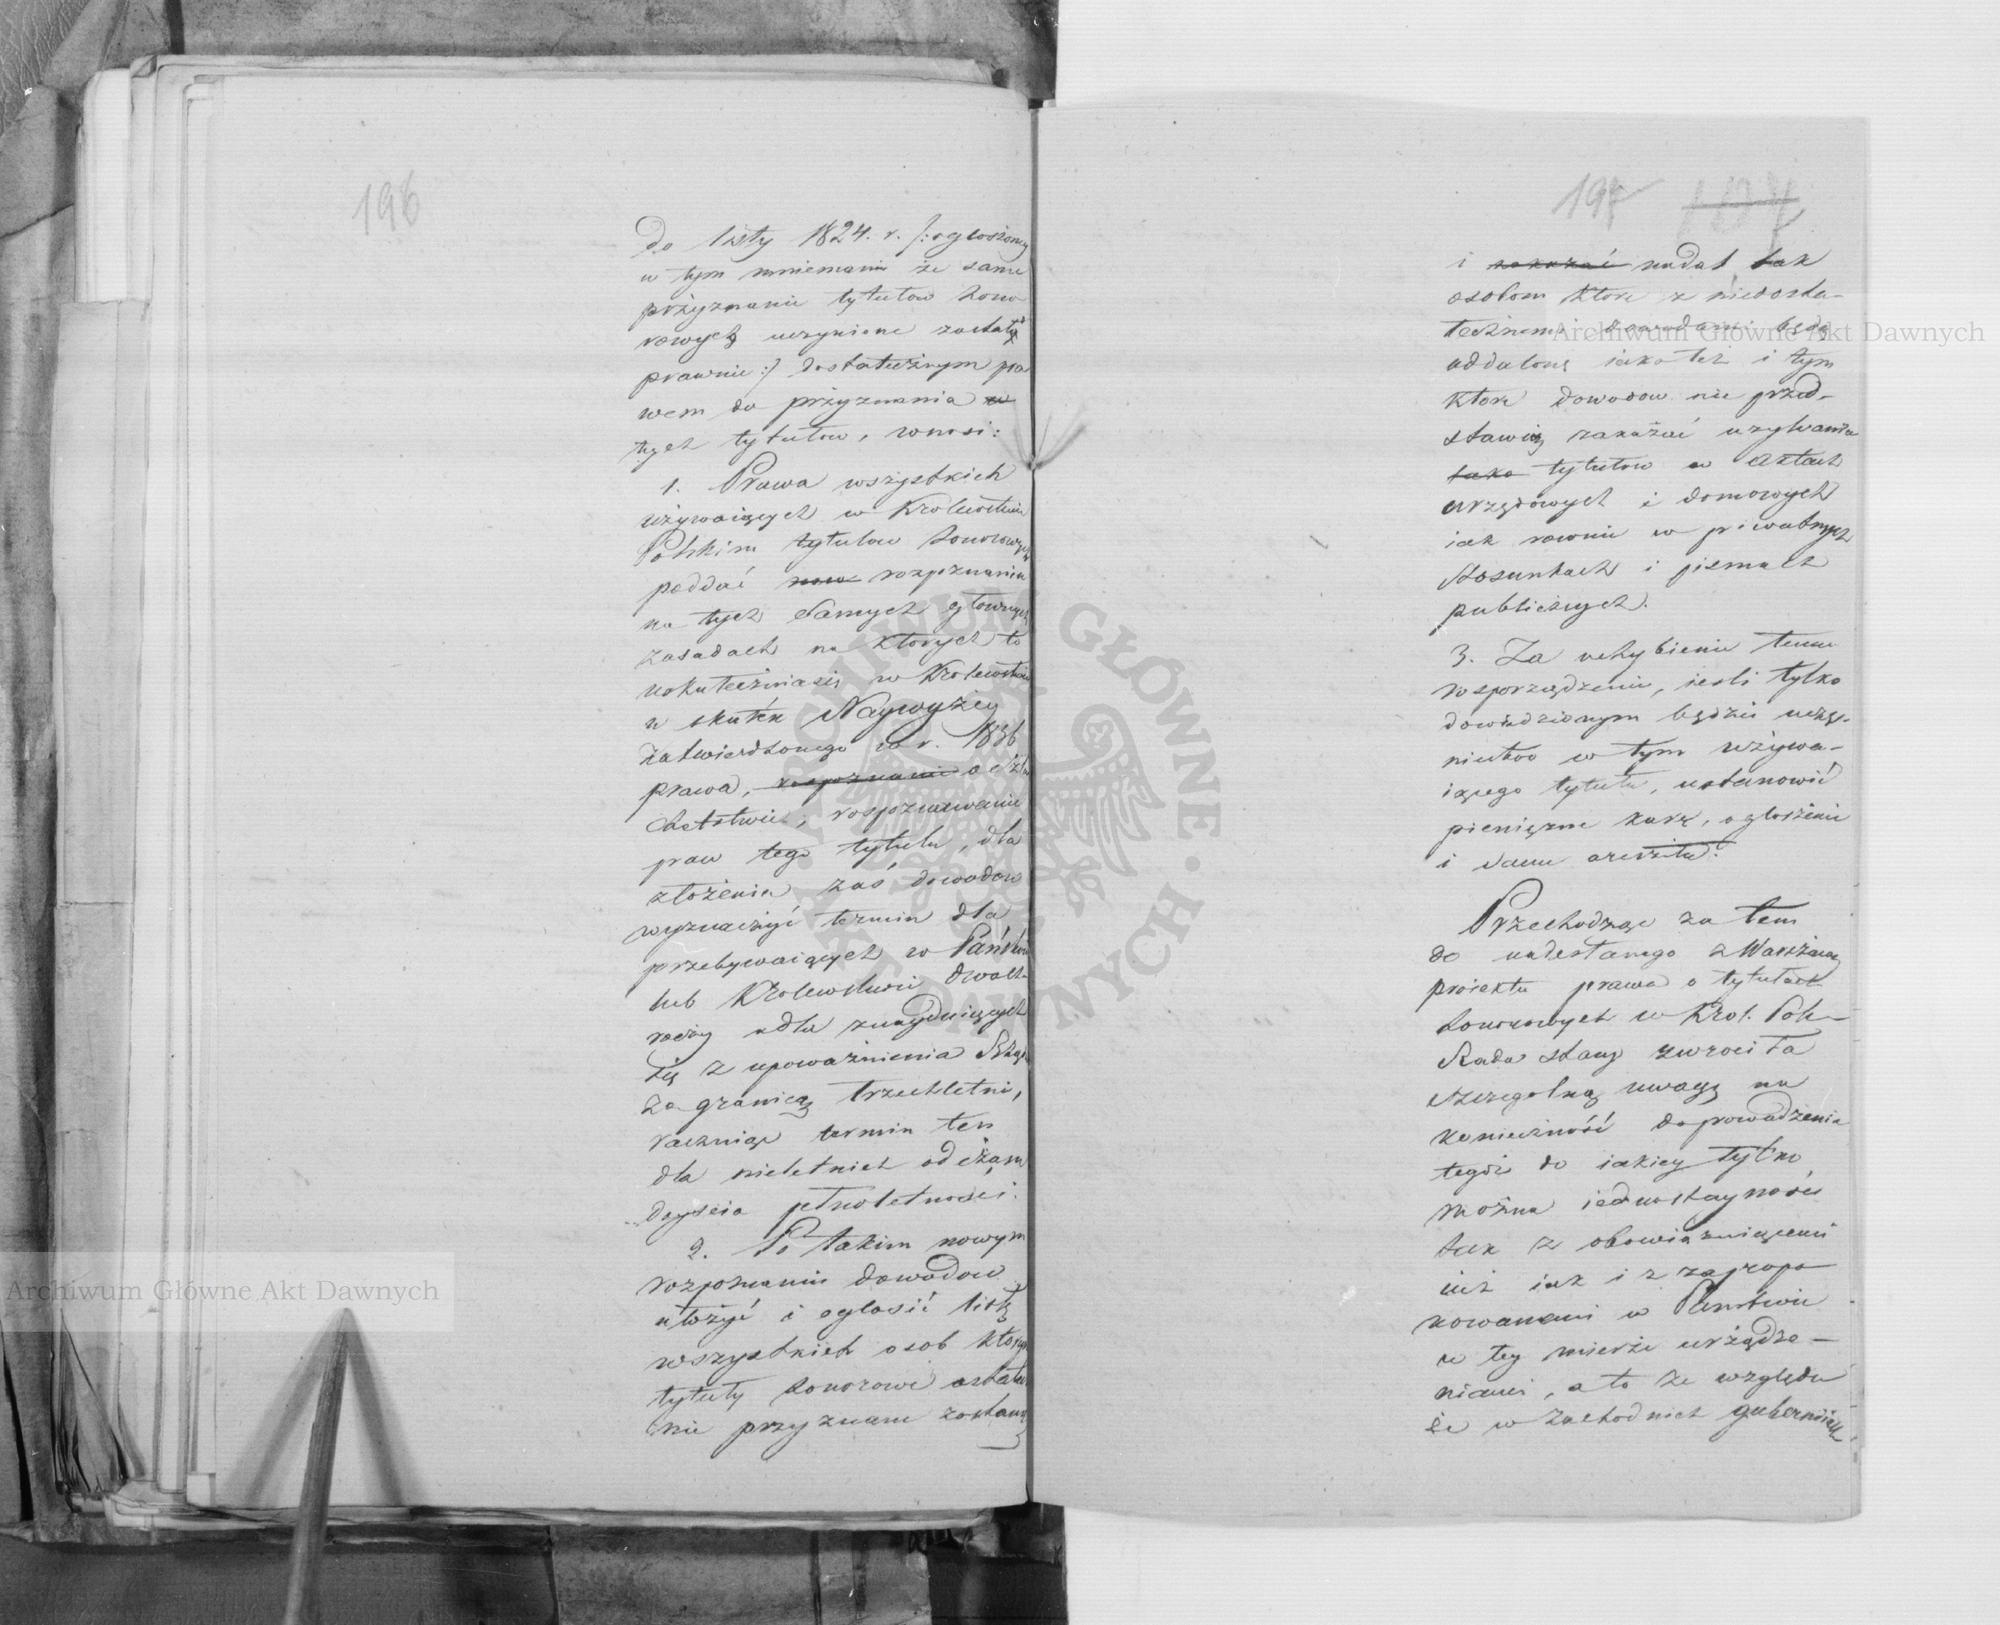 196
do listy 1824. r. /: ogłoszoney
w tym mniemaniu że same
przyznanie tytułow hono-
rowych uczynione zostało
prawnie :/ dostatecznym pra
wem do przyznania
tych tytułow, wnosi:
1. Prawa wszystkich
używaiących w Krolewstwie
Polskim tytułow honorowych
poddać rozpoznaniu
na tych samych głownych
zasadach na ktorych to
uskuteczniasię w Krolewstwie
w skutek Naywyżey
zatwierdzonego w r. 1836
prawa, rospoznanie o
chectwie, rospoznawanie
praw tego tytułu, dla
złożenia zaś dowodow
wyznaczyć termin dla
przebywaiących w Państwie
lub Krolewstwie dwoch-
roczny a dla znayduiących
się z upoważnienia Rządu
za granicą trzechletni,
rachuiąc termin ten
dla nieletnich od czasu
doyscia pełnoletnosci.
2. Po takim nowym
rozpoznaniu dowodow
ułożyć i ogłosić listę
wszystkich osob ktorym
tytuły honorowe ostatecz
nie przyznane zostaną
197 197
i zakazać nadal tak
osobom ktore z niedosta-
tecznemi dowodami będą
oddalone iako też i tym
ktore dowodow nie przed-
stawią zakazać używania
tytułow w aktach
urzędowych i domowych
iak rownie w prywatnych
stosunkach i pismach
publicznych.
3. Za uchybienie temu
rosporządzeniu, iesli tylko
dowiedzionym będzie uczę-
nictwo w tym używa-
iącego tytułu, ustanowić
pieniężne karę, ogłoszenie
i sam areszt.
Przechodząc za tem
do nadesłanego z Warszawy
proiektu prawa o tytułach
honorowych w Krol. Pols-
Rada stanu zwrociła
szczegolną uwagę na
konieczność doprowadzenia
tegoż do iakiey tylko
można iednostayności
tak z obowiązuiącemi
iuż iak i z zapropo
nowanemi w Państwie
w tey mierze urządze-
niami, a to ze względu
że w zachodnich guberniach
Archiwum Główne Akt Dawnych
Archiwum Główne Akt Dawnych
ARCHIWUM GŁÓWNE · AKT DAWNYCH ·